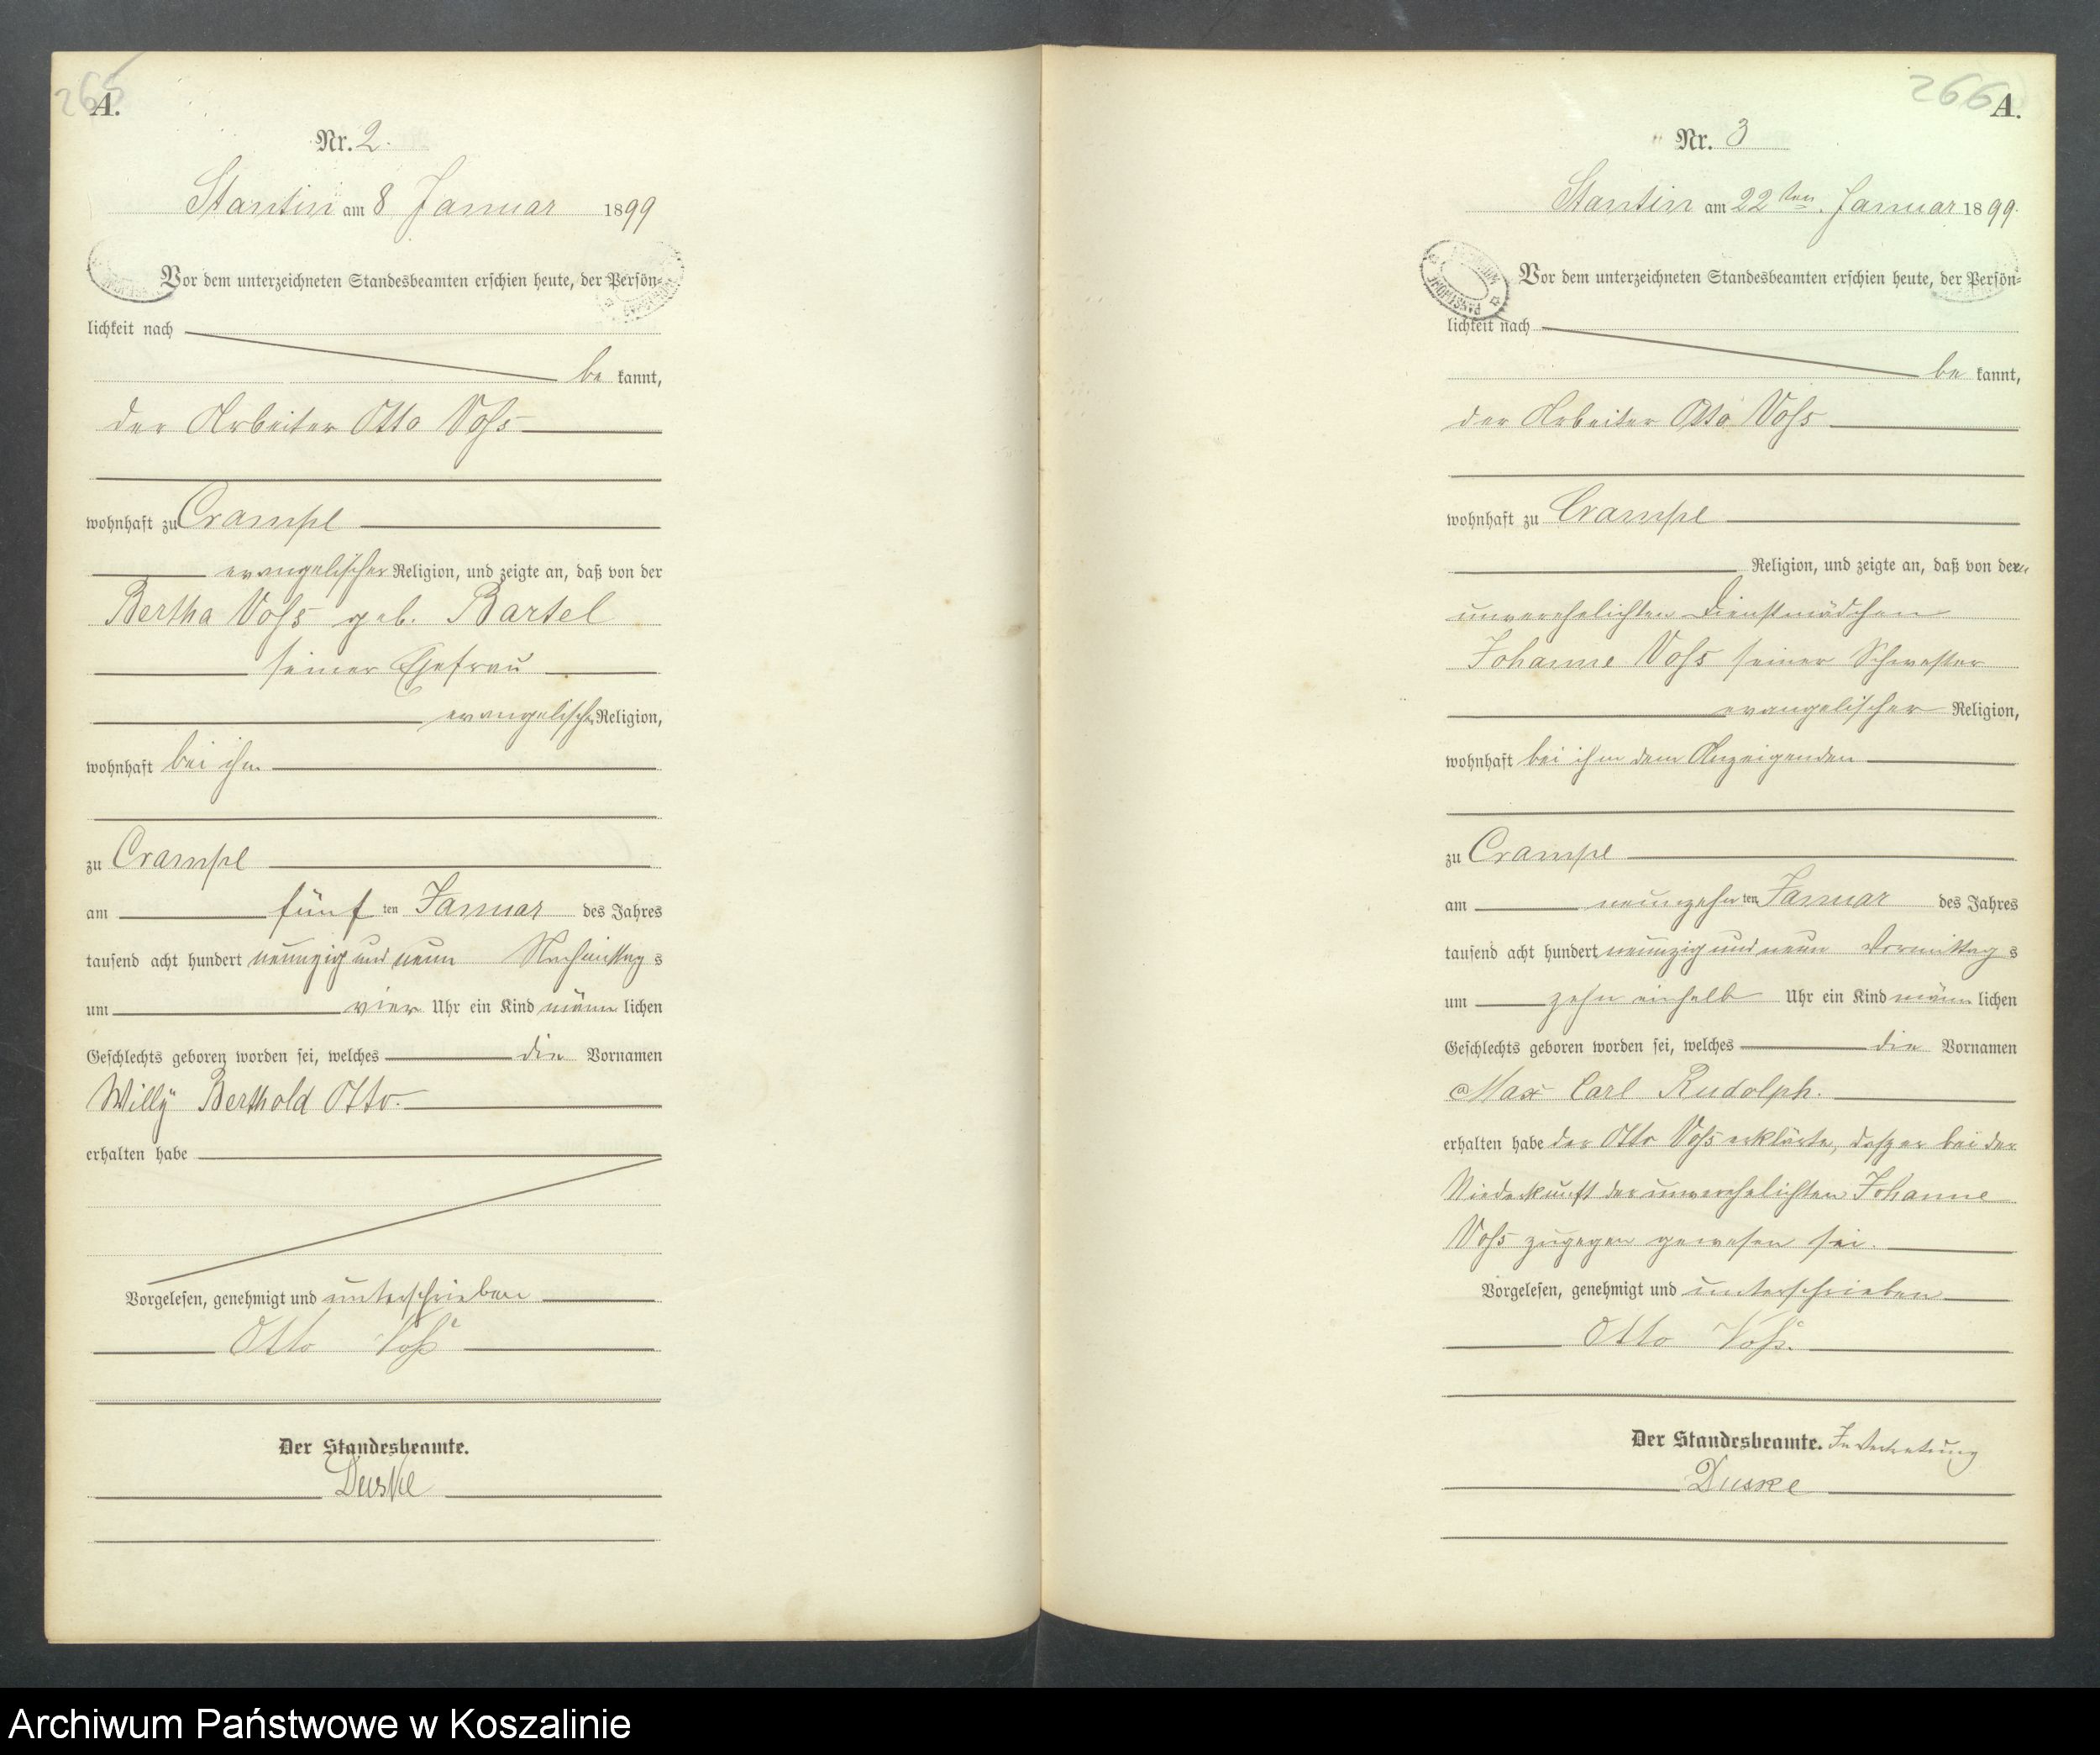 265
A.
Nr. 2.
Stantin am 8 Januar 1899
Vor dem unterzeichneten Standesbeamten erschien heute, der Persön-
lichkeit nach
be kannt,
der Arbeiter Otto Voß
wohnhaft zu Crampe
evangelischer Religion, und zeigte an, daß von der
Bertha Voß geb. Bartel
seiner Ehefrau
evangelischer Religion,
wohnhaft bei ihm
zu Crampe
am fünf ten Januar des Jahres
tausend acht hundert neunzig und neun Nachmittag s
um vier Uhr ein Kind männ lichen
Geschlechts geboren worden sei, welches die Vornamen
Willÿ Berthold Otto.
erhalten habe
Vorgelesen, genehmigt und unterschrieben
Otto Voß
Der Standesbeamte.
Duske
266
A.
Nr. 3
Stantin am 22ten. Januar 1899.
Vor dem unterzeichneten Standesbeamten erschien heute, der Persön-
lichkeit nach
be kannt,
der Arbeiter Otto Voß
wohnhaft zu Crampe
Religion, und zeigte an, daß von der
unverehelichten Dienstmädchen
Johanne Voß seiner Schwester
evangelischer Religion,
wohnhaft bei ihm dem Anzeigenden
zu Crampe
am neunzehn ten Januar des Jahres
tausend acht hundert neunzig und neun Vormittag s
um zehn einhalb Uhr ein Kind männ lichen
Geschlechts geboren worden sei, welches die Vornamen
Max Carl Rudolph.
erhalten habe der Otto Voß erklärte, daß er bei der
Niederkunft der unverehelichten Johanne
Voß zugegen gewesen sei.
Vorgelesen, genehmigt und unterschrieben
Otto Voß.
Der Standesbeamte. In Vertretung
Duske
Archiwum Państwowe w Koszalinie